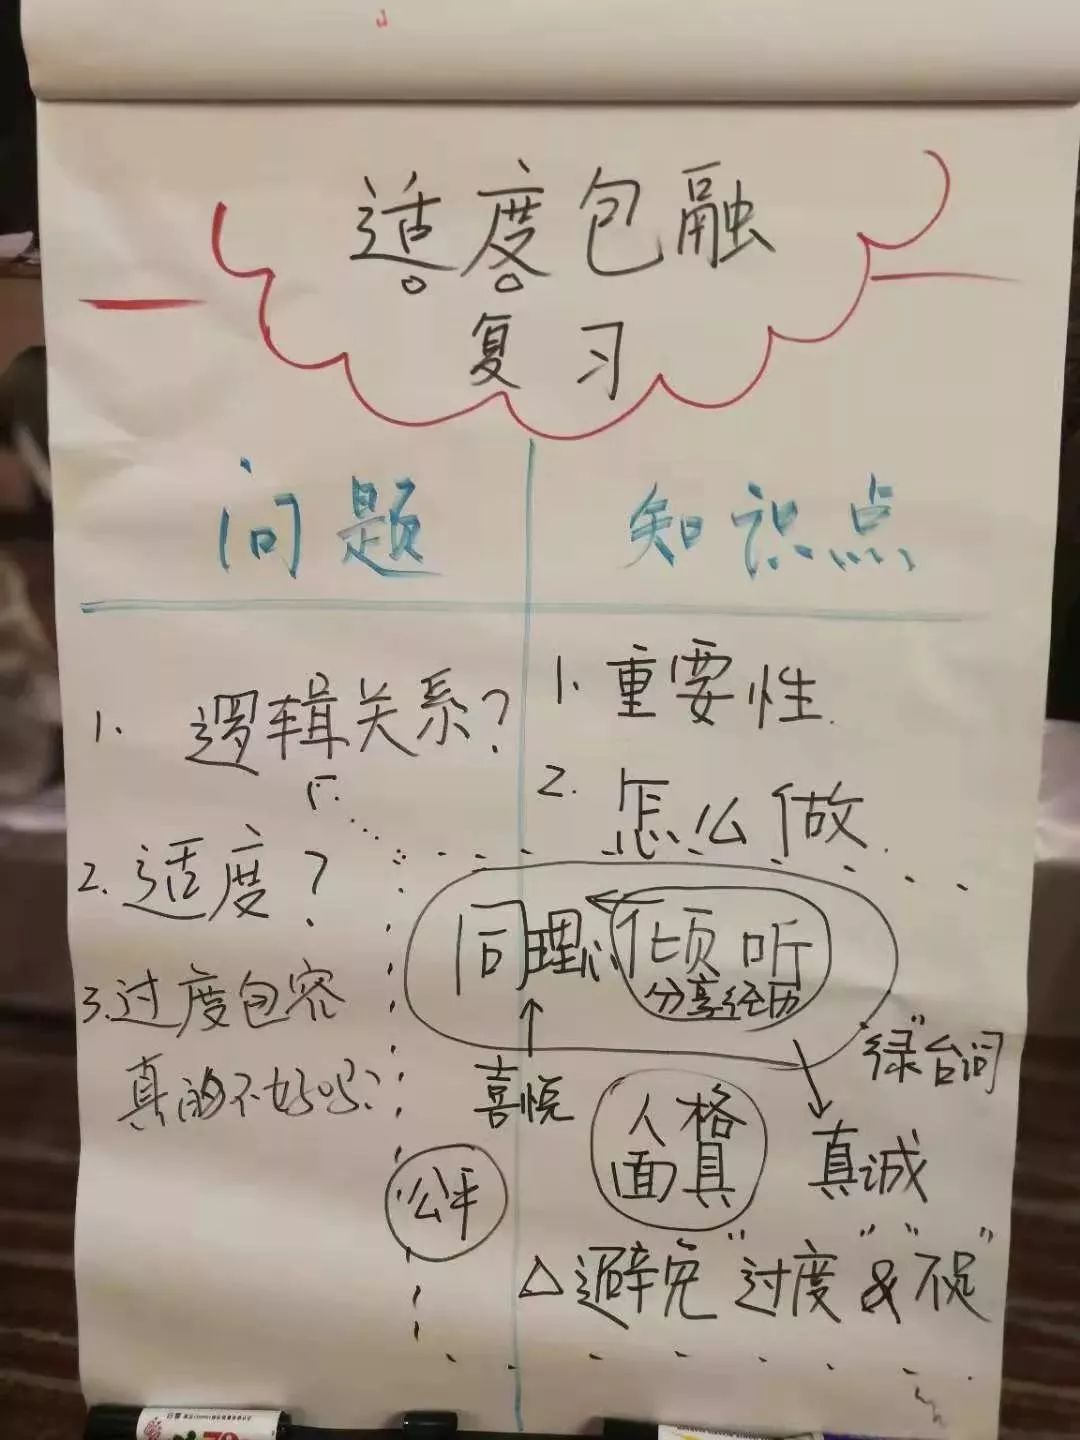 适度包融
复习
问题
知识点
1. 逻辑关系?
2. 适度?
3. 过度包容
真的不好吗?
公平
1. 重要性.
2. 怎么做.
同理心
倾听
分享经历
喜悦
"绿"台词
人格
面具
真诚
△避免"过度"&"不足"